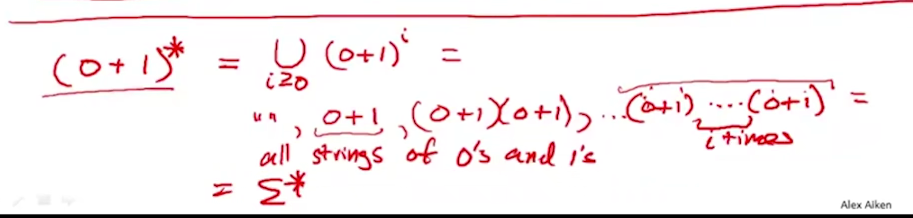 (0+1)* = ⋃ i≥0 (0+1)^i =
"", 0+1, (0+1)(0+1), ...(0+1)....(0+1) =
i times
all strings of 0's and 1's
= Σ*
Alex Aiken